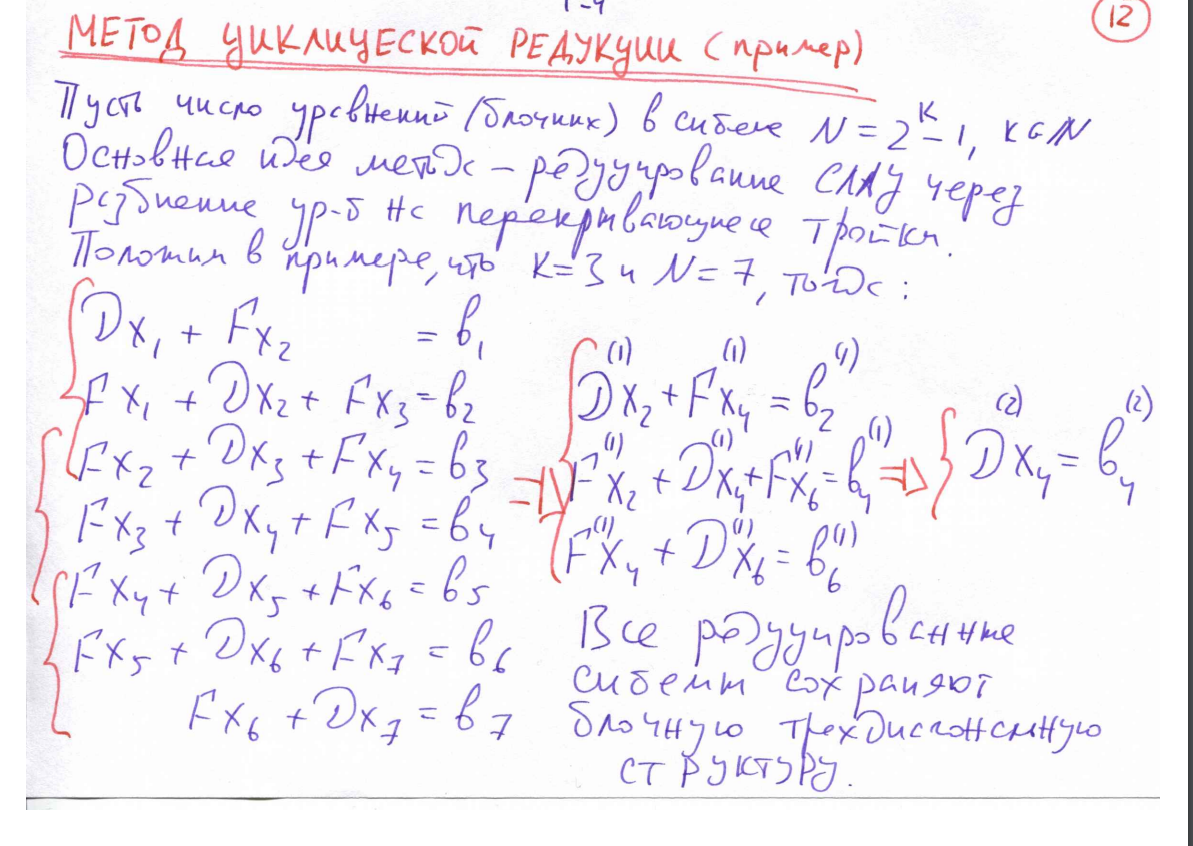 12
МЕТОД ЦИКЛИЧЕСКОЙ РЕДУКЦИИ (пример)
Пусть число уравнений (блочных) в системе N = 2^K - 1, K ∈ N
Основная идея метода – редуцирование СЛАУ через
разбиение ур-й на перекрывающиеся тройки.
Положим в примере, что K=3 и N=7, тогда:
Dx₁ + Fx₂ = b₁
Fx₁ + Dx₂ + Fx₃ = b₂
Fx₂ + Dx₃ + Fx₄ = b₃
Fx₃ + Dx₄ + Fx₅ = b₄
Fx₄ + Dx₅ + Fx₆ = b₅
Fx₅ + Dx₆ + Fx₇ = b₆
Fx₆ + Dx₇ = b₇
⇒
D⁽¹⁾x₂ + F⁽¹⁾x₄ = b₂⁽¹⁾
F⁽¹⁾x₂ + D⁽¹⁾x₄ + F⁽¹⁾x₆ = b₄⁽¹⁾
F⁽¹⁾x₄ + D⁽¹⁾x₆ = b₆⁽¹⁾
⇒
D⁽²⁾x₄ = b₄⁽²⁾
Все редуцированные
системы сохраняют
блочную трехдиагональную
структуру.